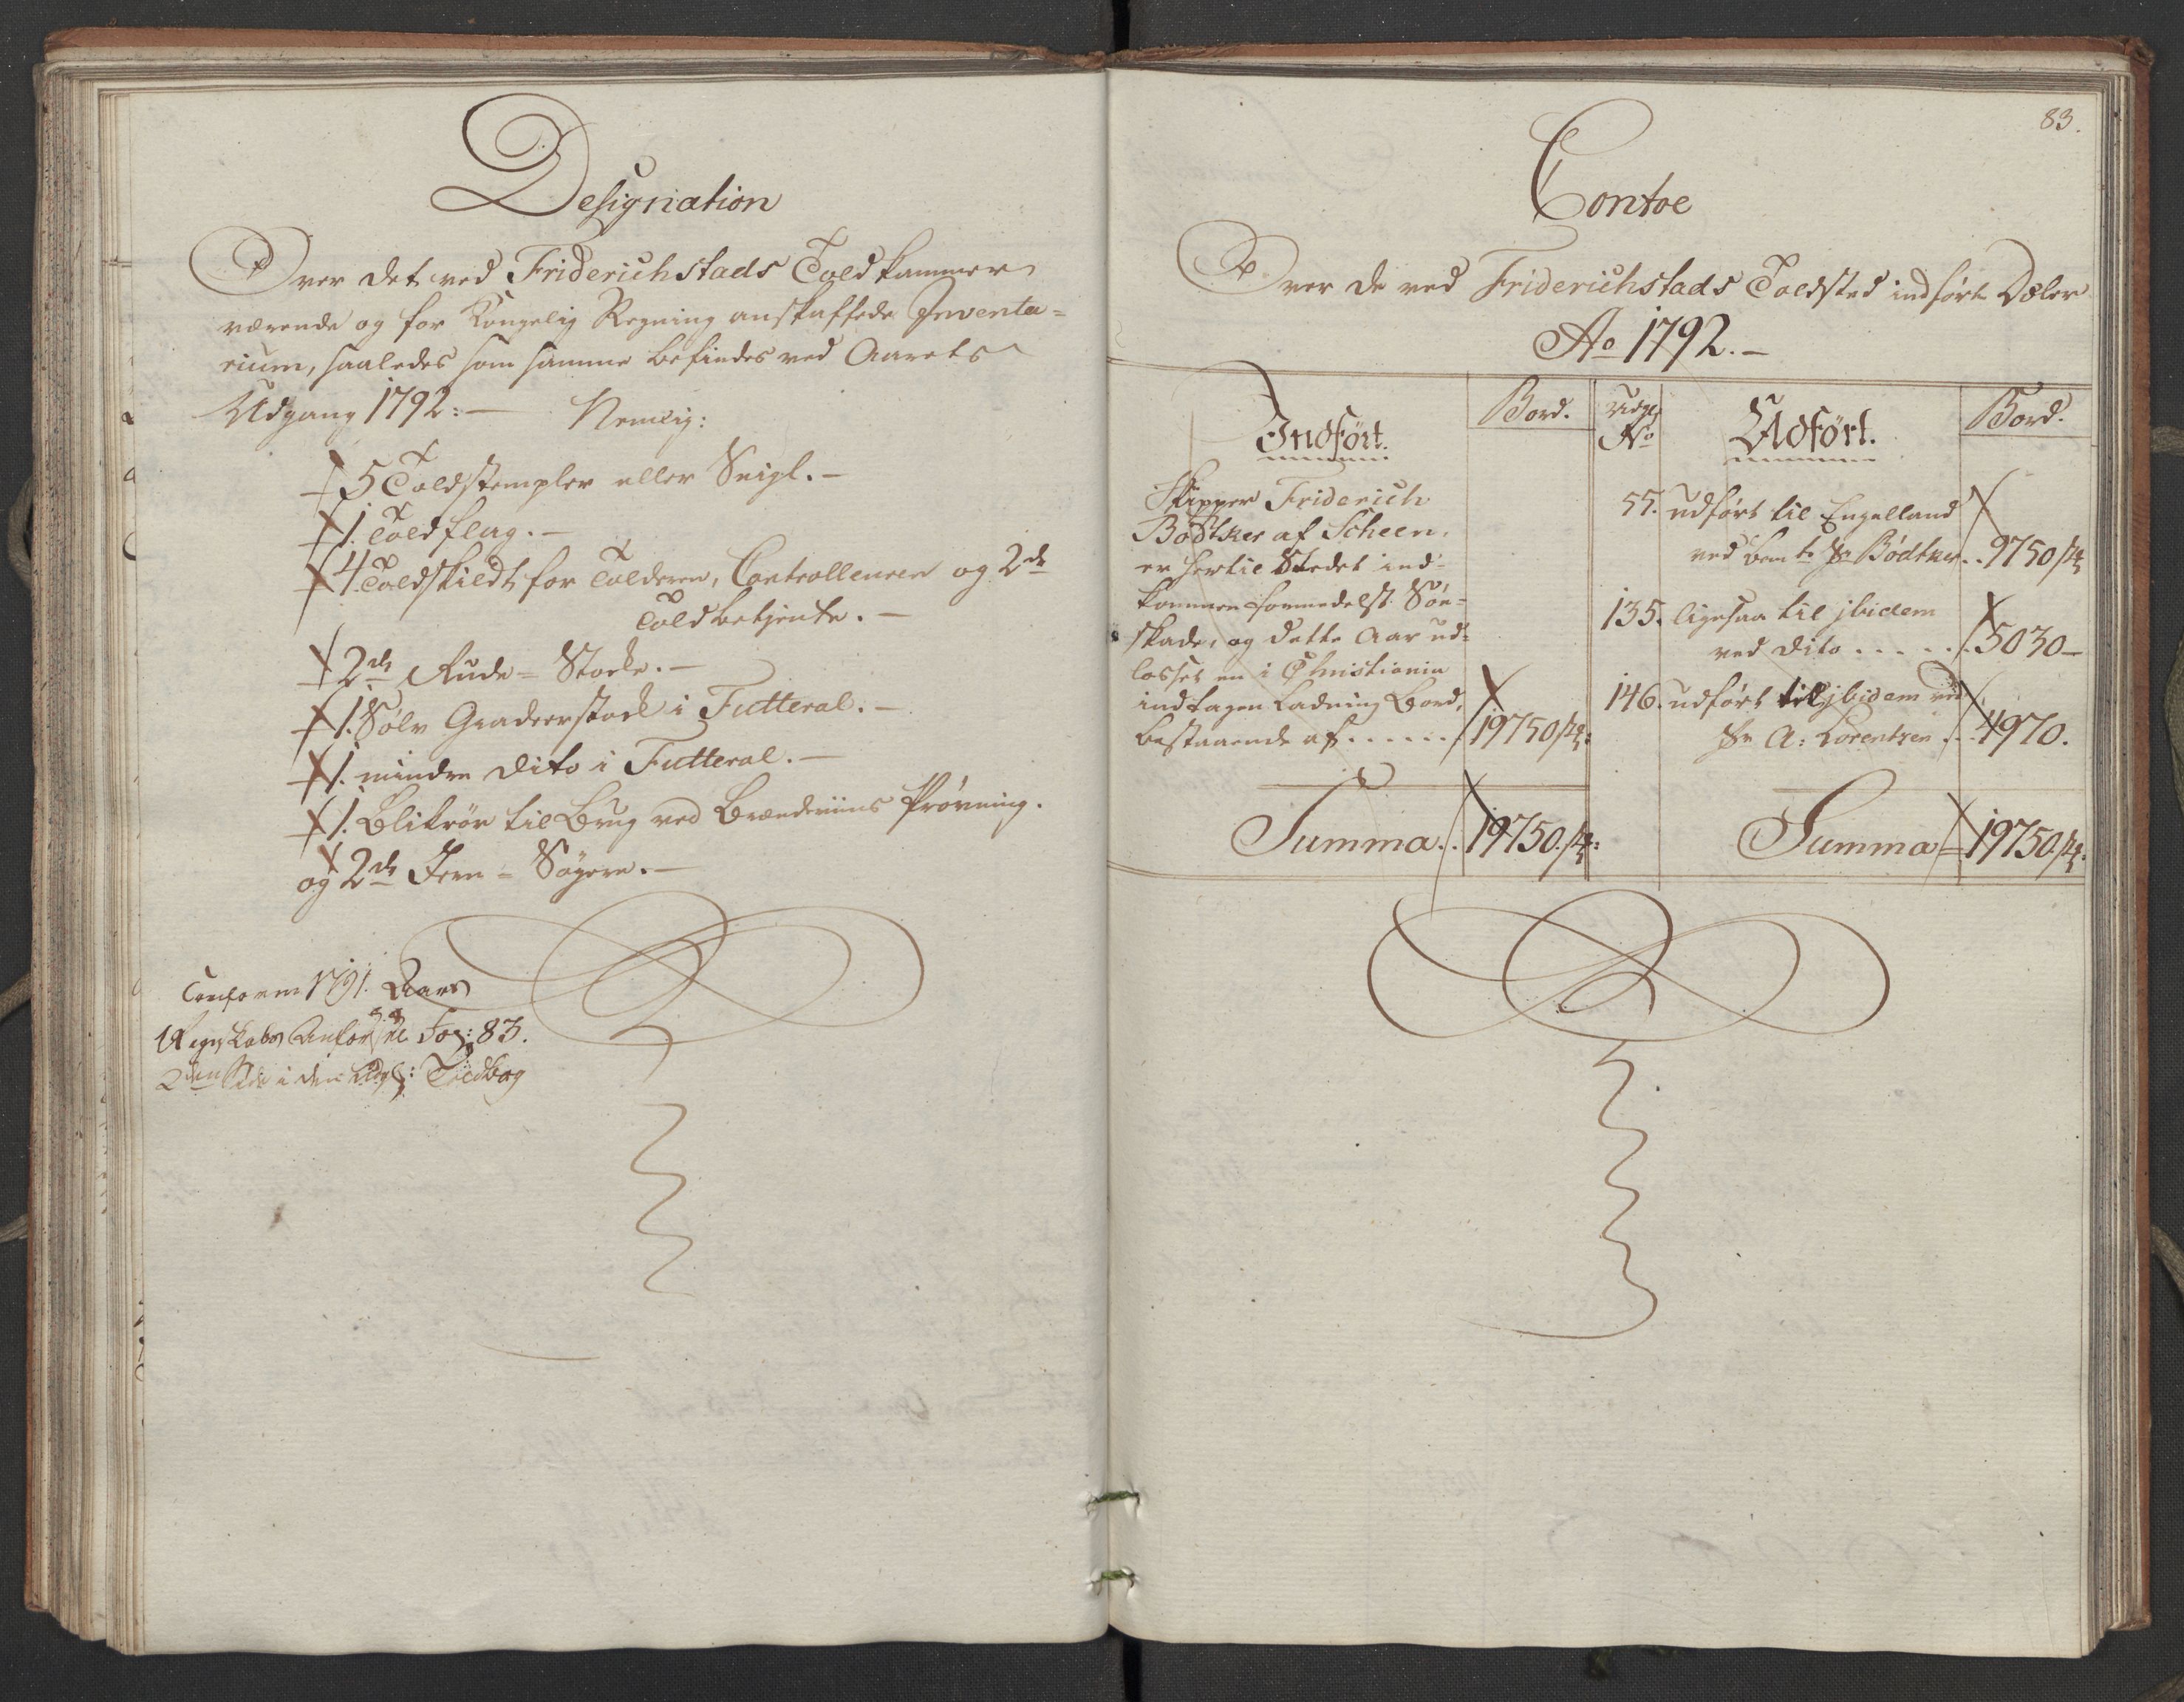 Designation
Over det ved Friderichstads Told kammer
værende og for Kongelig Regning anskaffede Inventa=
rium, saaledes som samme befindes ved Aarets
Udgang 1792:— Nemlig:
5 Toldstempler eller Seigl.—
1. Toldflag.—
4 Toldskildt for Tolderen, Controlleuren og 2de
Toldbetjente.—
2de Rude= Stocke.—
1. Sölv Gradeerstock i Futteral.—
1. mindre dito i Futteral.—
1. Blikrör til Brug ved Brændeviins Prövning.
og 2de Jern= Sögere.—
Conform 1791. Aars
Regnskabs Fog: 83.
2den Side i den Udg: Toldbog
83.
Contoe
Over de ved Friderichstads Toldsted indförte Dæler
Ao 1792.—
Indført. Bord. Udg: No Udført. Bord.
Skipper Friderich
Bödtker af Scheen,
er hertil Stedet ind=
kommen formedelst Söe=
skade, og dette Aar ud=
losset en i Christiania
indtagen Ladning Bord,
bestaaende af...... 19750 st:
55. udfört til Engelland
ved bemte Sr Bödtker.. 9750 st
135. ligesaa til jbidem
ved dito..... 5030—
146. udfört til jbidem ved
Sr A: Lorentzen... 4970.
Summa.. 19750. st: Summa= 19750. st: